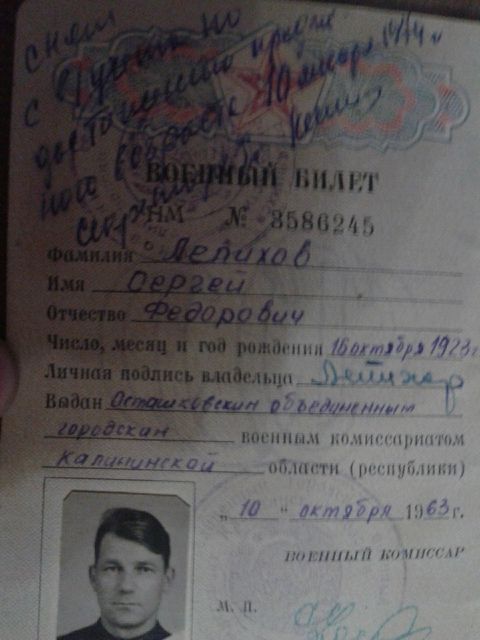 снят
с учета по
достижении предель
ного возраста 10 января 1974 г
ВОЕННЫЙ БИЛЕТ
НМ № 3586245
Фамилия Лепихов
Имя Сергей
Отчество Федорович
Число, месяц и год рождения 16 октября 1923 г
Личная подпись владельца Лепихов
Выдан Осташковским объединенным
городским военным комиссариатом
Калининской области (республики)
„10" октября 1963 г.
ВОЕННЫЙ КОМИССАР
М. П.